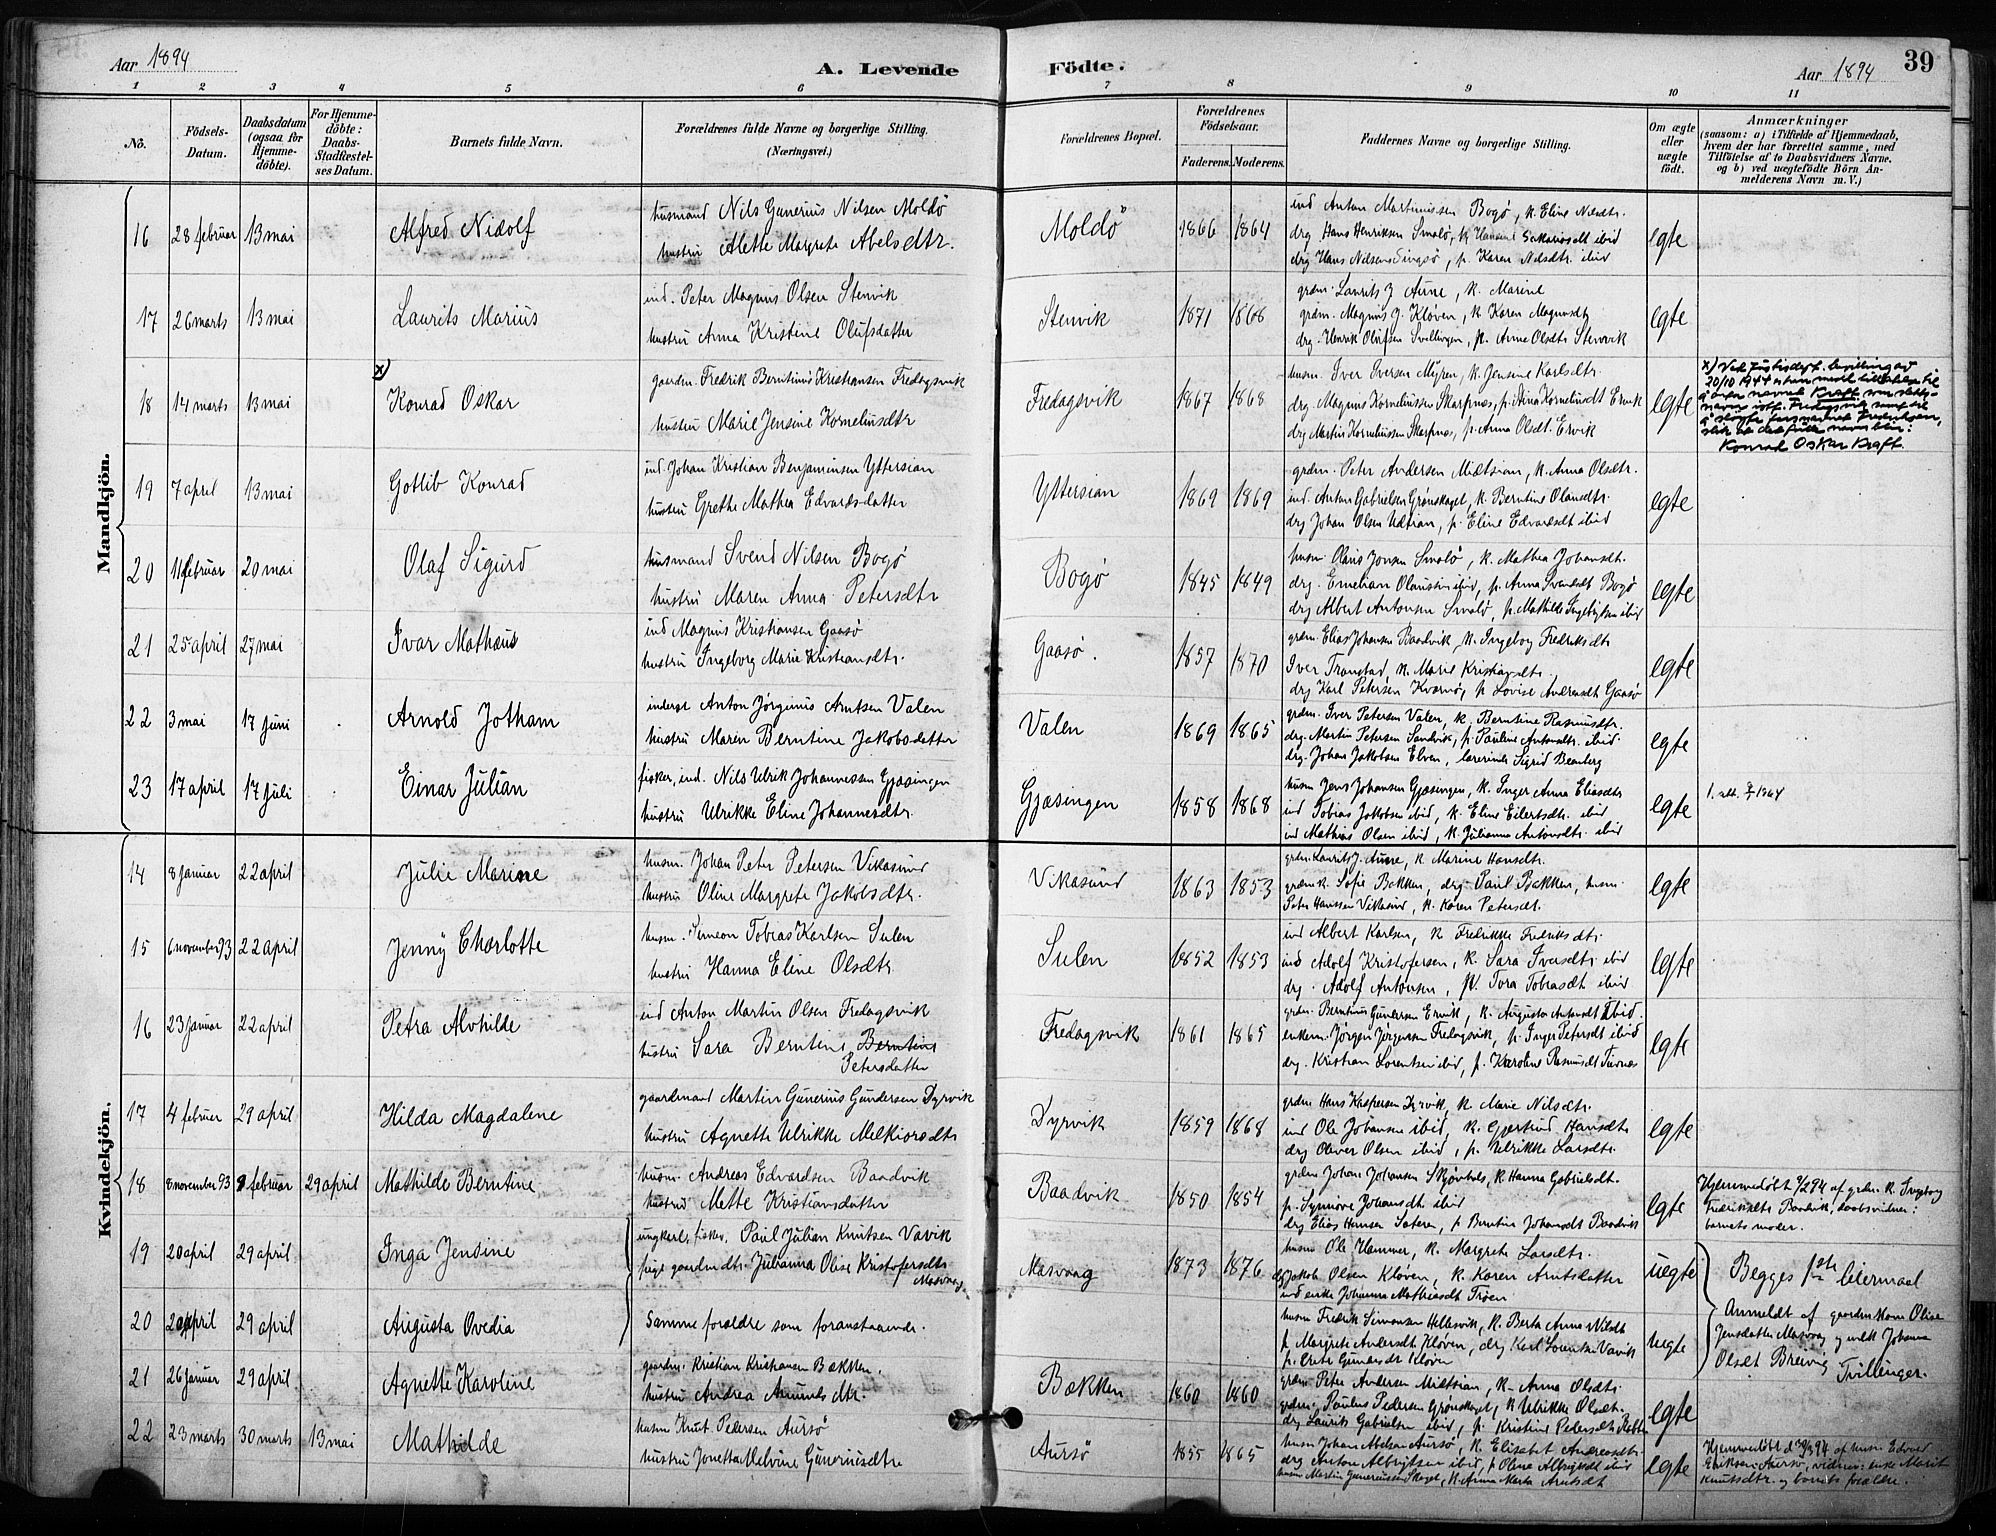 Aar 1894
A. Levende Födte.
Aar 1894
39
1 2 3 4 5 6 7 8 9 10 11
No.
Födsels-Datum.
Daabsdatum (ogsaa for Hjemme-döbte).
For Hjemme-döbte: Daabs-Stadfæstel-ses Datum.
Barnets fulde Navn.
Forældrenes fulde Navne og borgerlige Stilling. (Næringsvei.)
Forældrenes Bopæl.
Forældrenes Födselsaar.
Faderens. Moderens.
Faddernes Navne og borgerlige Stilling.
Om ægte eller uægte födt.
Anmærkninger
(saasom: a) i Tilfælde af Hjemmedaab, hvem der har forrettet samme, med Tilföielse af to Daabsvidners Navne. og b) ved uægtefödte Börn An-melderens Navn m. V.)
Mandkjön.
16 28 februar 13 mai Alfred Nidolf
husmand Nils Gunerius Nilsen Moldö
hustru Alette Margrete Abelsdtr.
Moldö 1866 1864
ind Anton Martinussen Bogö, k. Eline Nilsdtr.
drg Hans Henriksen Smalö, ibid
drg Hans Nilsen Singsö, p. Karen Nilsdtr. ibid
egte
17 26 marts 13 mai Laurits Marius
ind. Peter Magnus Olsen Stenvik
hustru Anna Kristine Olufsdatter
Stenvik 1871 1868
grdm. Laurits J Aune, k. Marine
grdm. Magnus J. Kløven, k Karen Magnusdtr
drg. Henrik Olufsen Svellingen, p. Anna Olsdtr Stenvik
egte
18 14 marts 13 mai x) Konrad Oskar
gaardm. Fredrik Berntinus Kristiansen Fredagsvik
hustru Marie Jensine Kornelиusdtr
Fredagsvik 1867 1868
husm. Iver Iversen Myren, k. Jensine Karlsdtr.
drg. Magnus Kornelиussen Skarpnes, p. Nina Kornelиusdt Ervik
drg Martin Kornelиussen Skarpnes, p. Anna Olsdt. Ervik
egte
x) Ved Justisdept. bevilling av
20/10 1944 er han meddelt tillatelse til
å anta navnet Kraft som slekts-
navn istf. Fredagsvik samt til
å sløyfe farsnavnet Fredriksen,
slik at det fulde navn blir:
Konrad Oskar Kraft.
19 7 april 13 mai Gotlib Konrad
ind. Johan Kristian Benjaminsen Yttersian
hustru Grethe Mathea Edvardsdatter
Yttersian 1869 1869
grdm. Peter Andersen Midtsian, k. Anna Olsdtr.
ind. Anton Gabrielsen Grønskaget, k. Berntine Olausdtr.
drg Johan Olsen Udtian, p. Eline Edvardsdt ibid
egte
20 11 februar 20 mai Olaf Sigurd
husmand Svend Nilsen Bogö
hustru Maren Anna Petersdtr
Bogö 1845 1849
husm. Olaus Jonsen Smalö, k. Mathea Johansdt.
drg. Emelian Olaussen ibid, p. Anna Svendsdt Bogö
drg Albert Antonsen Smalö, p. Mathilde Ingebrigtsen ibid
egte
21 25 april 27 mai Ivar Mathæus
ind Magnus Kristiansen Gaasö
hustru Ingeborg Marie Kristiansdtr.
Gaasö. 1857 1870
grdm. Elias Johansen Baadvik, k. Ingeborg Fredriksdtr
Iver Transtad, k. Marie Kristiansdtr.
drg Karl Petersen Kvernö, p Lovise Andreasdt Gaasö
egte
22 3 mai 17 juni Arnold Jotham
inderst Anton Jörginus Arntsen Valen
hustru Maren Berntine Jakobsdatter
Valen 1869 1865
grdm. Iver Petersen Valen, k. Berntine Rasmusdtr.
drg. Martin Petersen Sandvik, p. Pauline Antonsdtr. ibid
drg. Johan Jakobsen Elven, lærerinde Sigrid
egte
23 17 april 17 juli Einar Julian
fisker, ind. Nils Ulrik Johannessen Gjæsingen
hustru Ulrikke Eline Johannesdtr.
Gjæsingen 1858 1868
husm. Jens Johansen Gjæsingen, k. Inger Anna Eliasdtr
ind Tobias Jakobsen ibid, k. Eline Eilertsdtr. ibid
ind Mathias Olsen ibid, k. Julianna Antonsdtr. ibid
egte
Kvindekjön.
14 8 januar 22 april Julie Marine
husm. Johan Peter Petersen Vikasund
hustru Oline Margrete Jakobsdtr.
Vikasund 1863 1853
grdm. Laurits J. Aune, k. Marine Hansdtr.
grdm k. Sofie Bakken, drg. Paul Bakken, husm.
Peter Hanssen Vikasund, k. Karen Petersdt.
egte
15 6 november 93 22 april Jenny Charlotte
husm. Simeon Tobias Karlsen Sulen
hustru Hanna Eline Olsdtr.
Sulen 1852 1853
ind Albert Karlsen, k Fredrikke Fredriksdtr.
ind Adolf Kristofersen, k. Sara Iversdtr. ibid
drg. Adolf Antonsen, p. Tora Tobiasdt ibid
egte
16 23 januar 22 april Petra Alvhilde
ind Anton Martin Olsen Fredagsvik
hustru Sara Berntine Berntine
Petersdatter
Fredagsvik 1861 1865
grdm. Berntinus Gundersen Ervik, k. Augusta Antonsdt ibid.
enkem. Jörgen Jörgensen Fredagsvik, p. Inger Petersdt ibid
drg. Kristian Lorentsen ibid, p. Karoline Rasmusdt
egte
17 4 februar 29 april Hilda Magdalene
gaardmand Martin Gunerius Gundersen Dyrvik
hustru Agnette Ulrikke Melkiorsdtr
Dyrvik 1859 1868
grdm Hans Kaspersen Dyrvik, k. Marie Nilsdtr.
ind Ole Johansen ibid, k. Gjertrud Hansdtr
drg Oliver Olsen ibid, p. Ulrikke Larsdtr.
egte
18 8 november 93 9 februar 29 april Mathilde Berntine
husm. Andreas Edvardsen Baadvik
hustru Mette Kristiansdatter
Baadvik 1850 1854
grdm Johan Johansen Skjönhals, k. Hanna Gabrielsdt.
p. Synnøve Johansdt ibid
drg Elias Hansen Sæteren, p Berntine Johansdt Baadvik
egte
Hjemmedöbt 9/2 94 af grdm. k. Ingeborg
Fredriksdtr Baadvik, daabsvidner:
barnets moder.
19 20 april 29 april Inga Jensine
ungkarl, fisker, Paul Julian Knutsen Vavik
pige gaardmdtr. Julianna Olise Kristofersdtr
Masvaag
Masvaag 1873 1876
husm Ole Hammer, k. Margrete Larsdtr.
drg Jakob Olsen Kløven, k. Karen Arntsdatter
ind enke Johanna Mathiasdt Trøen
uegte
Begges 1ste leiermaal
Anmeldt af gaardm kone Olise
Jensdatter Masvaag og Johanna
Olsdt Breivig Tvillinger.
20 20 april 29 april Augusta Ovedia
Samme forældre som foranstaaende.
husm Fredrik Simonsen Hellesvik, k. Berta Anna Nilsdt
p. Margrete Andersdt Kløven, drg Karl Lorentsen Vavik
p. Grete Gunersdt Kløven
uegte
21 26 januar 29 april Agnette Karoline
gaardm. Kristian Kristiansen Bakken.
hustru Andrea Amundsdtr.
Bakken 1860 1860
grdm. Peter Andersen Midtsian, k. Anna Olsdtr.
grdm. Paulus Pedersen Grønskaget, k Ulrikke Olsdt.
drg Laurits Gabrielsen ibid, p. Kristine Pedersdtr
egte
22 23 marts 30 marts 13 mai Mathilde
husm Knut Pedersen Aursö
hustru Jonetta Melvine Guneriusdtr
Aursö 1855 1865
husm Johan Abelsen Aursö, k. Elisabet Andreasdtr
drg Anton Albrigtsen ibid, p Oline Albrigtsdt ibid
husm Martin Guneriussen Skaget, k. Anna Marta Arntsdt
egte
Hjemmedöbt d 30/3 94 af husm Edvard
Eriksen Aursö, vidner: enke Marit
Knutsdtr. og barnets forældre.